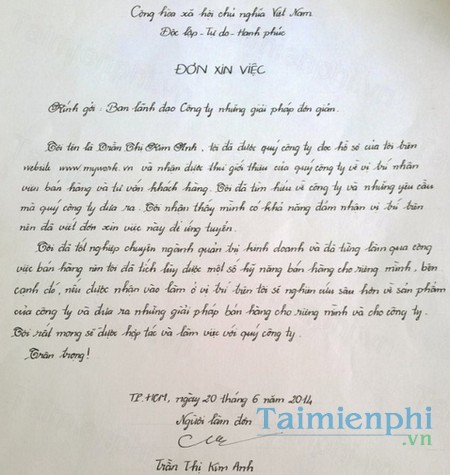 Cộng hòa xã hội chủ nghĩa Việt Nam
Độc lập - Tự do - Hạnh phúc
ĐƠN XIN VIỆC
Kính gởi: Ban lãnh đạo Công ty những giải pháp đơn giản.
Tôi tên là Trần Thị Kim Anh, tôi đã được quý công ty đọc hồ sơ của tôi trên
website www.mywork.vn và nhận được thư giới thiệu của quý công ty về vị trí nhân
viên bán hàng và tư vấn khách hàng. Tôi đã tìm hiểu về công ty và những yêu cầu
mà quý công ty đưa ra. Tôi nhận thấy mình có khả năng đảm nhận vị trí trên
nên đã viết đơn xin việc này để ứng tuyển.
Tôi đã tốt nghiệp chuyên ngành quản trị kinh doanh và đã từng làm qua công
việc bán hàng nên tôi đã tích lũy được một số kỹ năng bán hàng cho riêng mình, bên
cạnh đó, nếu được nhận vào làm ở vị trí trên tôi sẽ nghiên cứu sâu hơn về sản phẩm
của công ty và đưa ra những giải pháp bán hàng cho riêng mình và cho công ty.
Tôi rất mong sẽ được hợp tác và làm việc với quý công ty.
Trân trọng!
TP.HCM, ngày 20 tháng 6 năm 2014
Người làm đơn
Taimienphi
.vn
Trần Thị Kim Anh